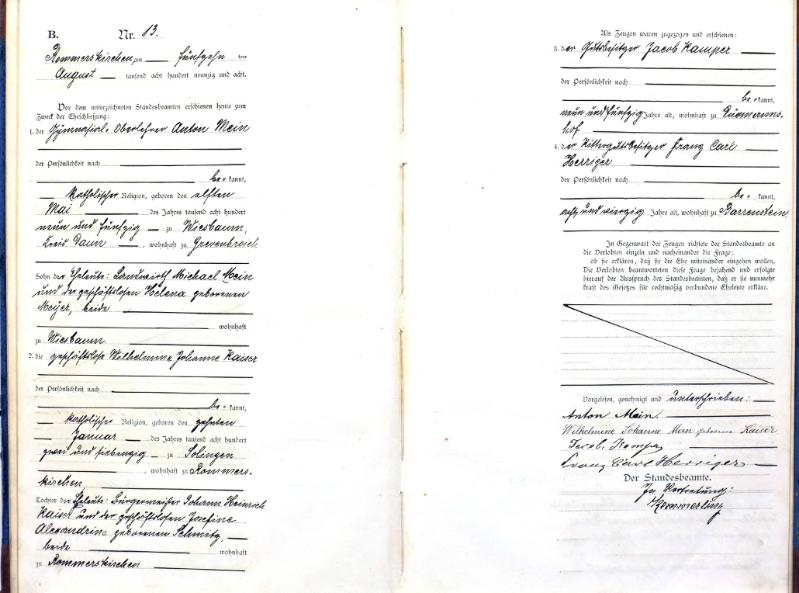 B. Nr. 13.
Rommerskirchen am fünfzehn ten
August tausend acht hundert neunzig und acht.
Vor dem unterzeichneten Standesbeamten erschienen heute zum
Zweck der Eheschließung:
1. der Gymnasial-Oberlehrer Anton Mein
der Persönlichkeit nach
be kannt,
katholischer Religion, geboren den elften
Mai des Jahres tausend acht hundert
neun und fünfzig zu Wiesbaum,
Kreis Daun, wohnhaft zu Grevenbroich
Sohn der Eheleute: Landwirth Michael Mein
und der geschäftslosen Helena geborenen
Meyer, beide
wohnhaft
zu Wiesbaum
2. die geschäftslose Wilhelmine Johanne Kaiser
der Persönlichkeit nach
be kannt,
katholischer Religion, geboren den zehnten
Januar des Jahres tausend acht hundert
zwei und siebenzig zu Solingen
, wohnhaft zu Rommers-
kirchen,
Tochter der Eheleute: Bürgermeister Johann Heinrich
Kaiser und der geschäftslosen Josefine
Alexandrine geborenen Schmitz,
beide wohnhaft
zu Rommerskirchen
Als Zeugen waren zugezogen und erschienen:
3. der Gutsbesitzer Jacob Kamper
der Persönlichkeit nach
be kannt,
neun und fünfzig Jahre alt, wohnhaft zu
hof
4. der Rittergutsbesitzer Franz Carl
Herriger
der Persönlichkeit nach
be kannt,
acht und vierzig Jahre alt, wohnhaft zu Barrenstein
In Gegenwart der Zeugen richtete der Standesbeamte an
die Verlobten einzeln und nacheinander die Frage:
ob sie erklären, daß sie die Ehe miteinander eingehen wollen.
Die Verlobten beantworteten diese Frage bejahend und erfolgte
hierauf der Ausspruch des Standesbeamten, daß er sie nunmehr
kraft des Gesetzes für rechtmäßig verbundene Eheleute erkläre.
Vorgelesen, genehmigt und unterschrieben:
Anton Mein
Wilhelmine Johanne Mein geborene Kaiser
Jacob Kamper
Franz Carl Herriger
Der Standesbeamte.
In Vertretung: